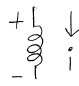 + i
-